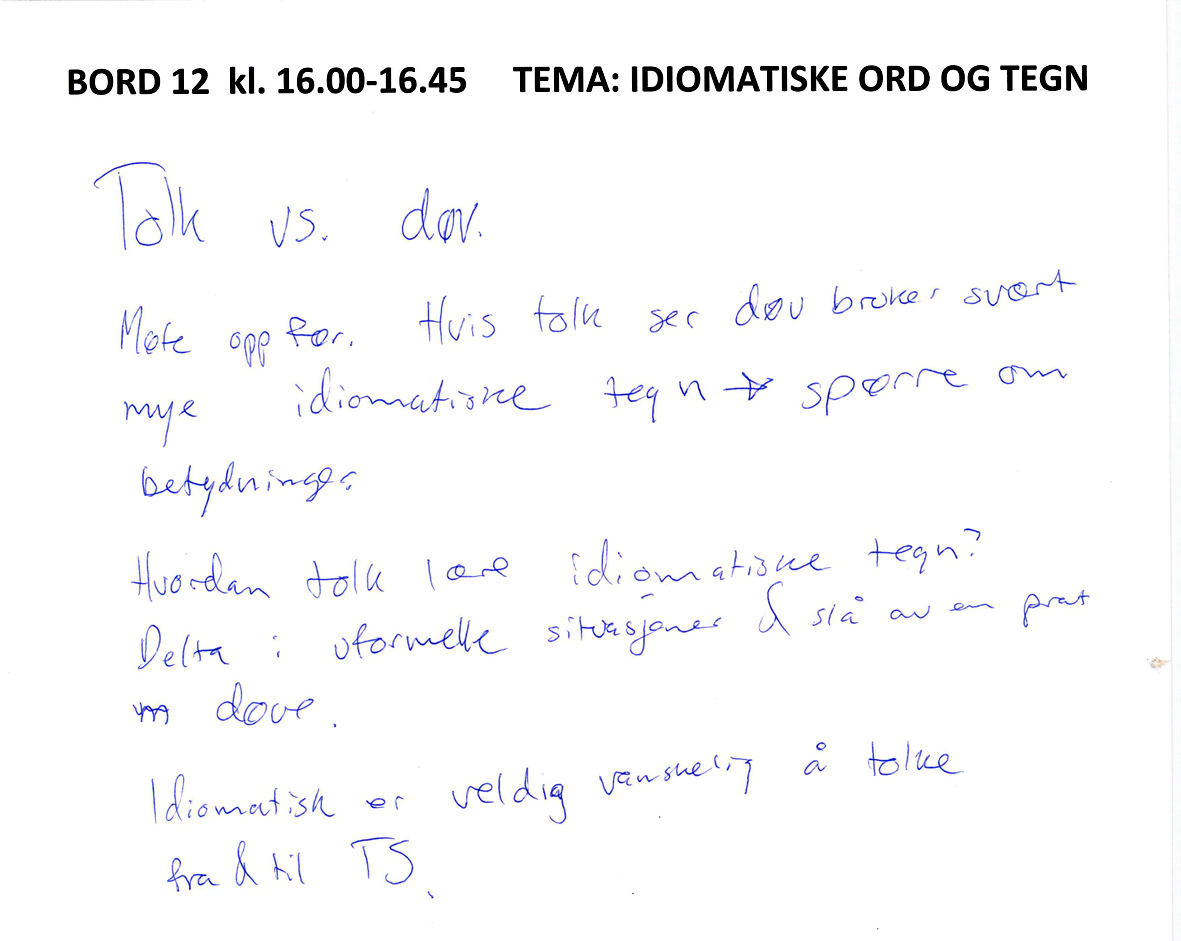 BORD 12 kl. 16.00-16.45 TEMA: IDIOMATISKE ORD OG TEGN
Tolk vs. døv.
Møte opp før. Hvis tolk ser døv bruker svært
mye idiomatiske tegn → spørre om
betydninger
Hvordan tolk lære idiomatiske tegn?
Delta i uformelle situasjoner & slå av en prat
m døve.
Idiomatisk er veldig vanskelig å tolke
fra & til TS.